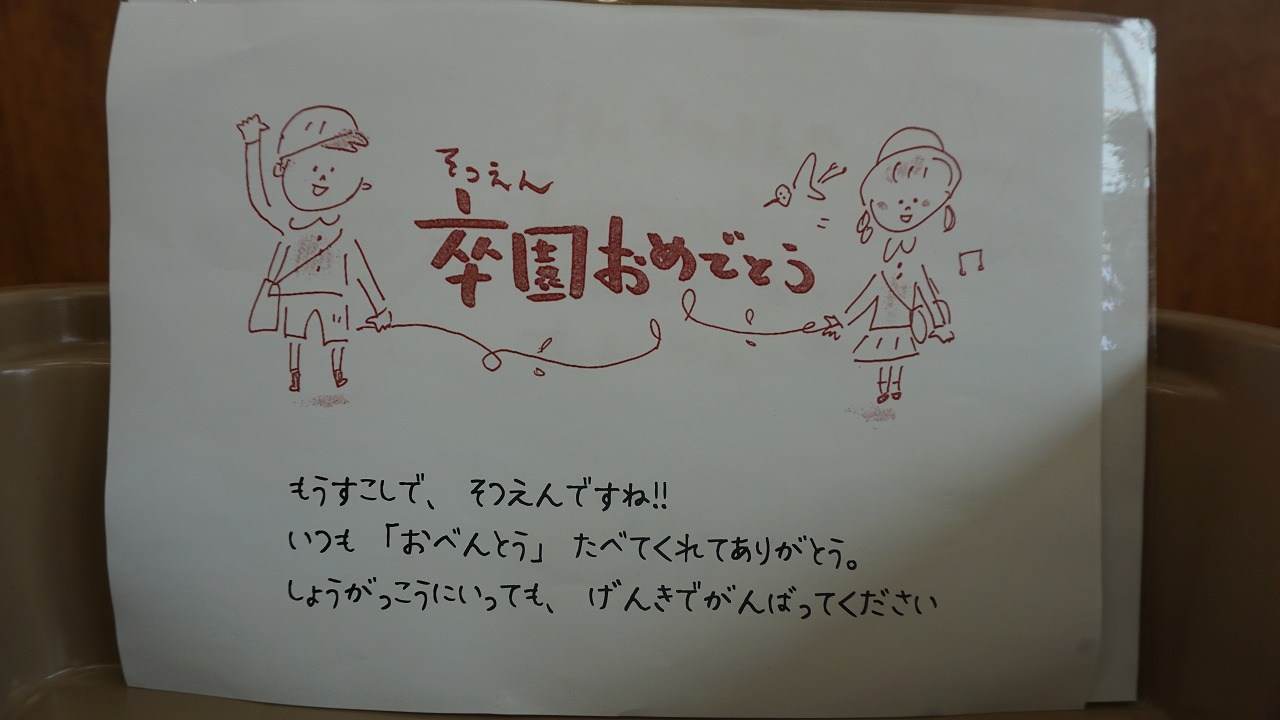 そつえん
卒園おめでとう
もうすこしで、 そつえんですね!!
いつも 「おべんとう」 たべてくれてありがとう。
しょうがっこうにいっても、 げんきでがんばってください